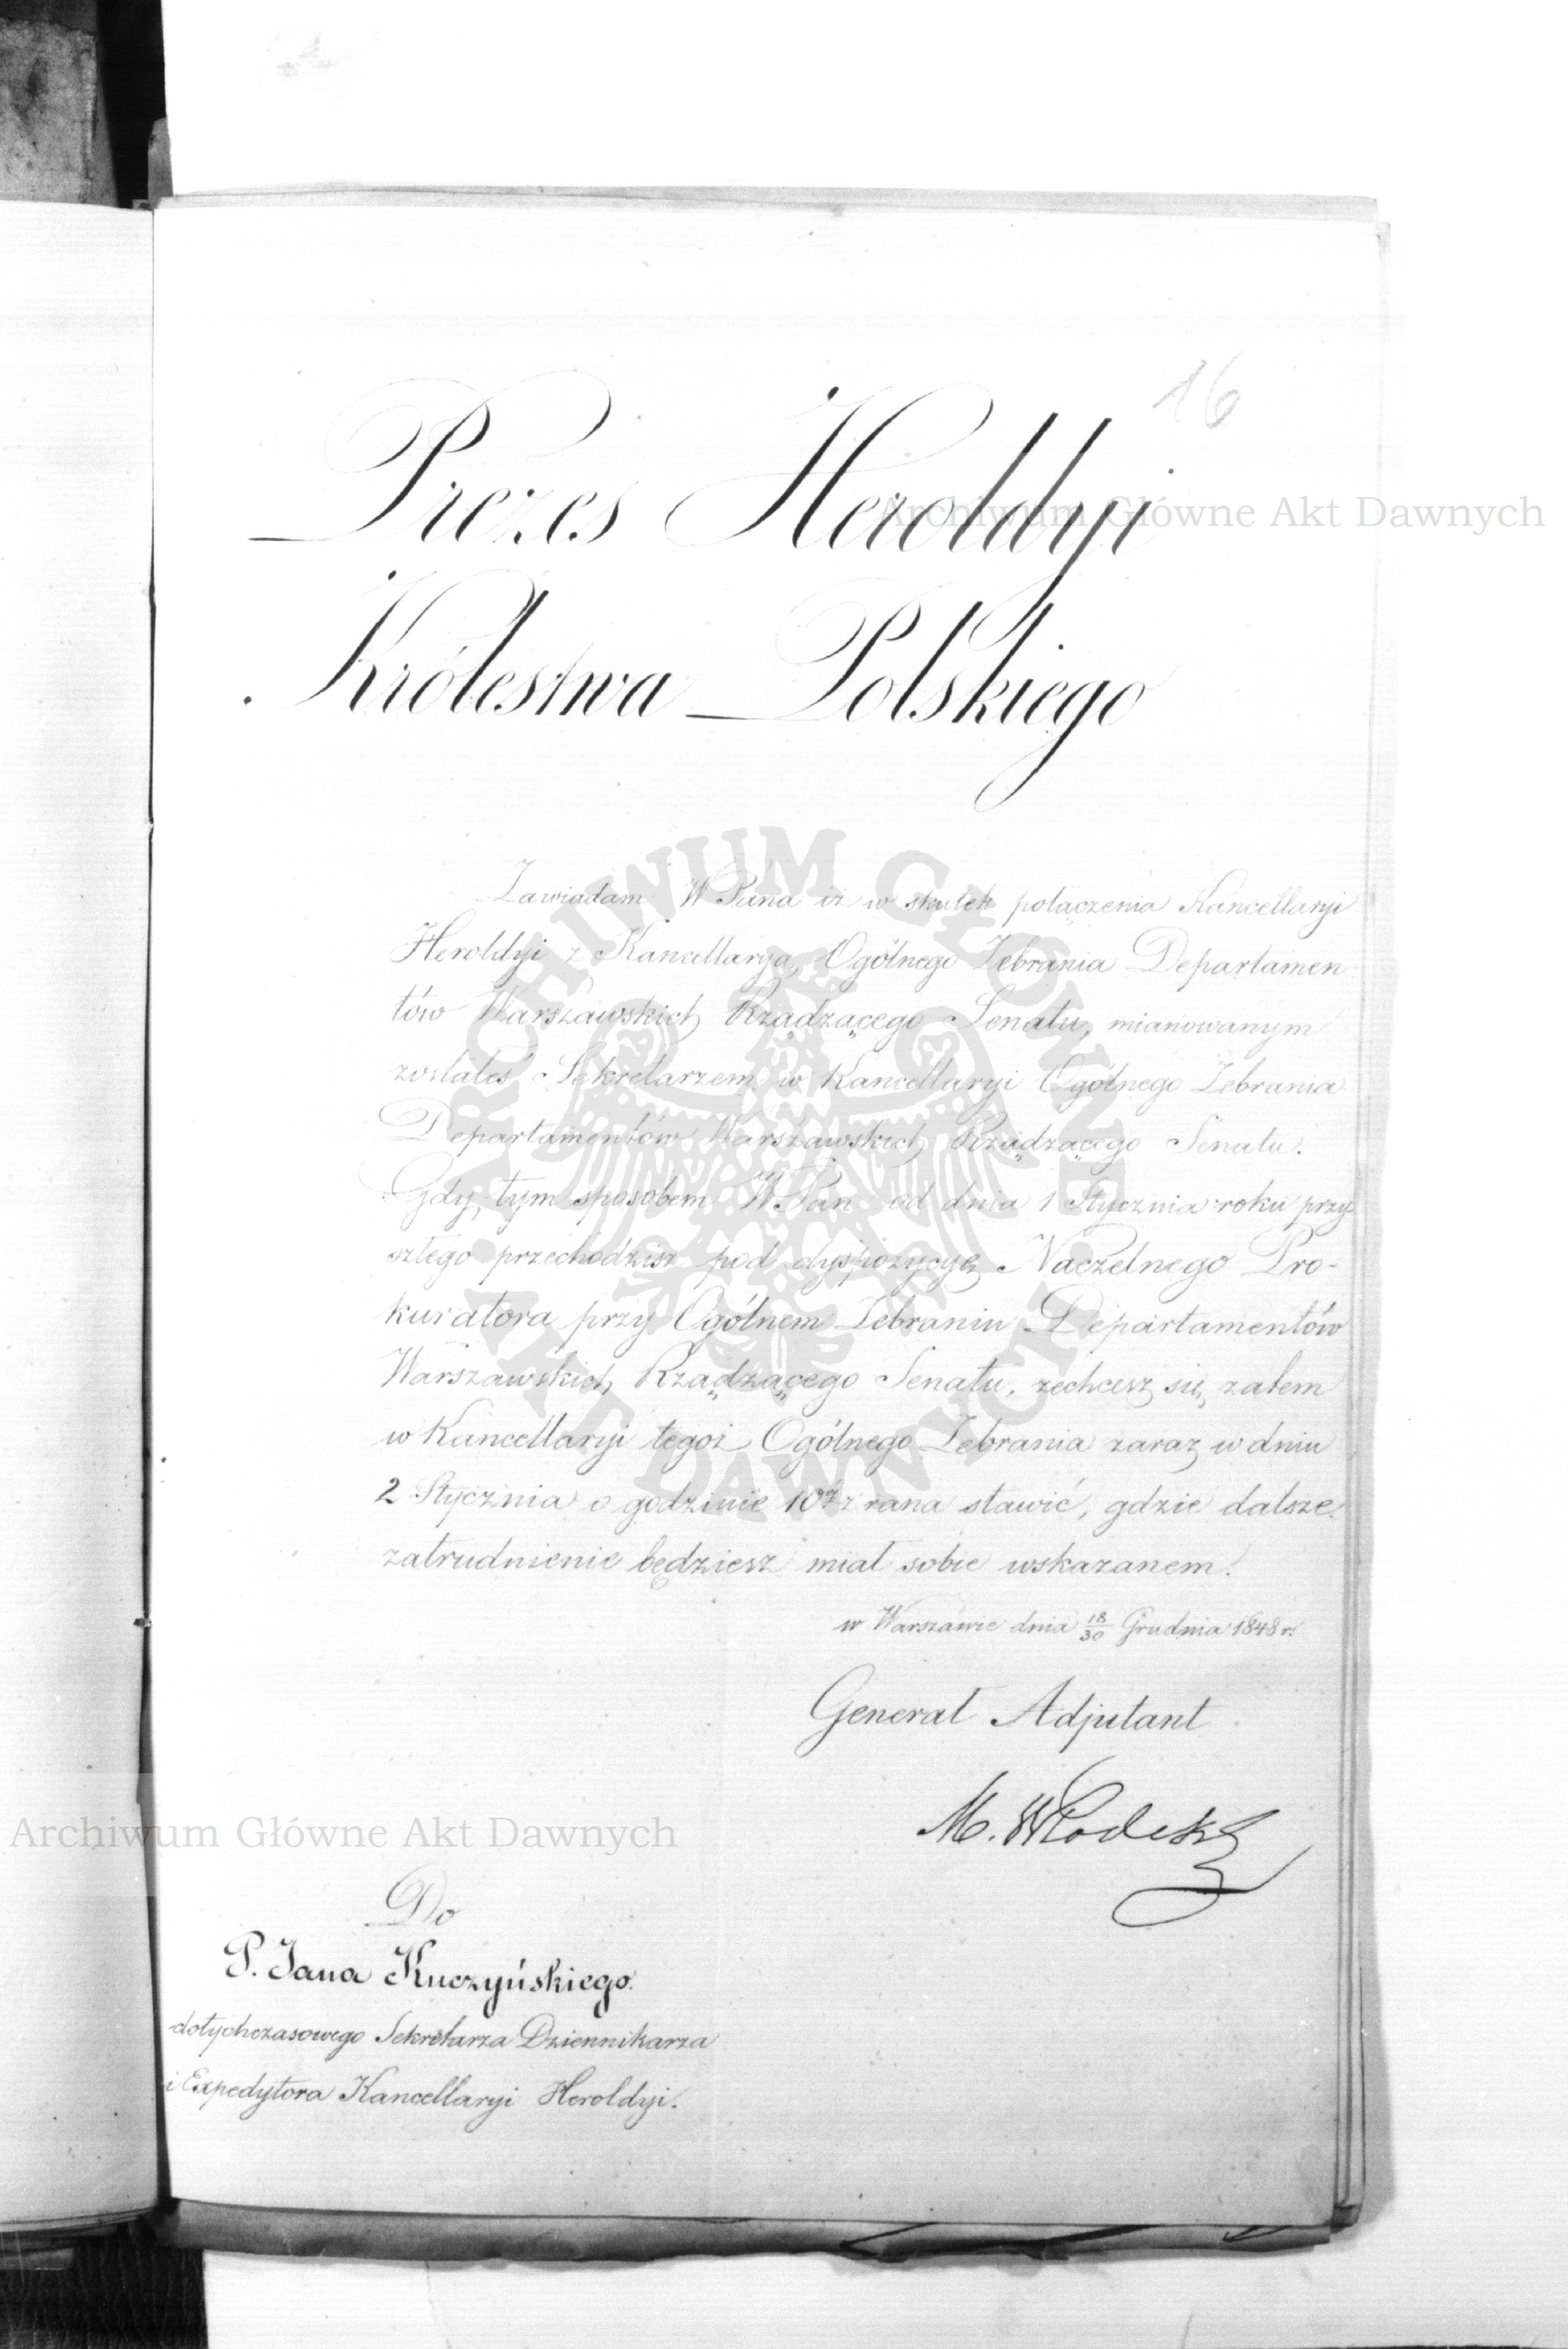 16
Prezes Heroldyi
Królestwa Polskiego
Zawiadam WPana iż w skutek połączenia Kancellaryi
Heroldyi z Kancellaryą Ogólnego Zebrania Departamen
tów Warszawskich Rządzącego Senatu, mianowanym
zostałeś Sekretarzem w Kancellaryi Ogólnego Zebrania
Departamentów Warszawskich Rządzącego Senatu.
Gdy tym sposobem WPan od dnia 1 Stycznia roku przy
szłego przechodzisz pod dyspozycyę Naczelnego Pro-
kuratora przy Ogólnem Zebraniu Departamentów
Warszawskich Rządzącego Senatu, zechcesz się zatem
w Kancellaryi tegoż Ogólnego Zebrania zaraz w dniu
2 Stycznia o godzinie 10ej z rana stawić, gdzie dalsze
zatrudnienie będziesz miał sobie wskazanem.
w Warszawie dnia 18/30 Grudnia 1848 r.
Generał Adjutant
M. Włodek
Do
P. Jana Kuczyńskiego.
dotychczasowego Sekretarza Dziennikarza
i Expedytora Kancellaryi Heroldyi.
Archiwum Główne Akt Dawnych
Archiwum Główne Akt Dawnych
ARCHIWUM GŁÓWNE AKT DAWNYCH